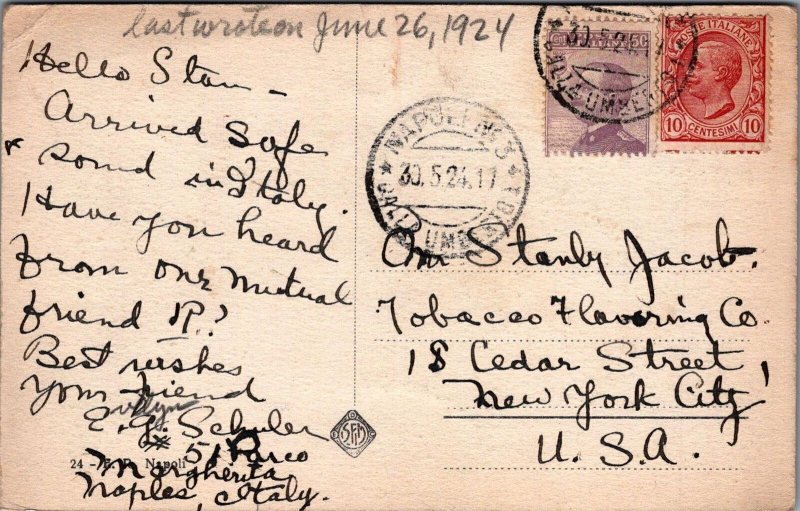 last wrote on June 26, 1924
Hello Stan -
Arrived safe
& sound in Italy.
Have you heard
from our mutual
friend R?
Best wishes
your friend
Evelyn
E. G. Schuler
51 Parco
Margherita
Naples, Italy.
24 - E. D. Napoli
SFM
NAPOLI N. 3
30.5.24.17
GALL. UMB.
30.5.24.17
GALL. UMBERTO I
50
POSTE ITALIANE
10 10
CENTESIMI
Mr Stanly Jacob.
Tobacco Flavoring Co.
18 Cedar Street,
New York City
U. S. A.